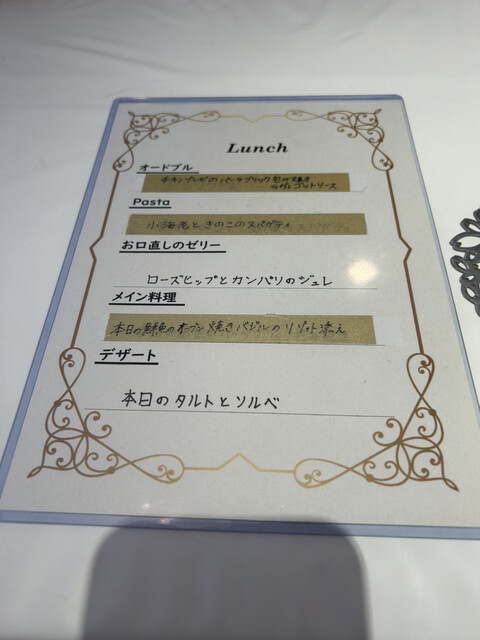 Lunch
オードブル
チキンブレゼのパートブリック包み焼き
ラヴィゴットソース
Pasta
小海老ときのこのスパゲティ
お口直しのゼリー
ローズヒップとカンパリのジュレ
メイン料理
本日の鮮魚のオーブン焼きバジルのリゾット添え
デザート
本日のタルトとソルベ